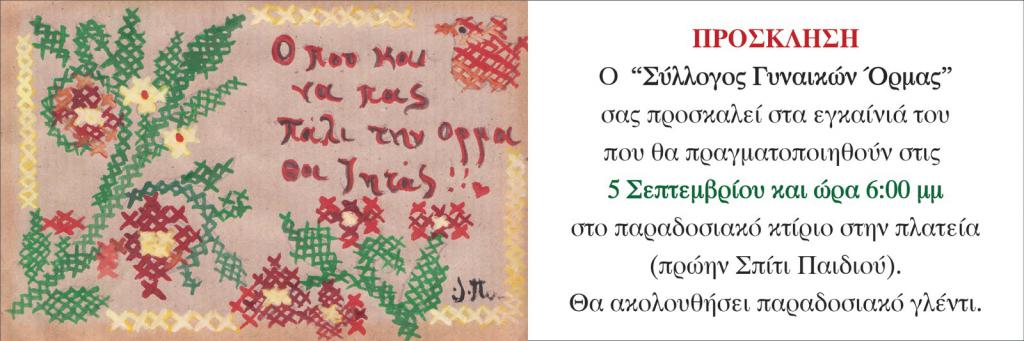 Ο που και
να πας
πάλι την Όρμα
θα ζητάς!!
J.Πν.
ΠΡΟΣΚΛΗΣΗ
Ο “Σύλλογος Γυναικών Όρμας”
σας προσκαλεί στα εγκαίνιά του
που θα πραγματοποιηθούν στις
5 Σεπτεμβρίου και ώρα 6:00 μμ
στο παραδοσιακό κτίριο στην πλατεία
(πρώην Σπίτι Παιδιού).
Θα ακολουθήσει παραδοσιακό γλέντι.